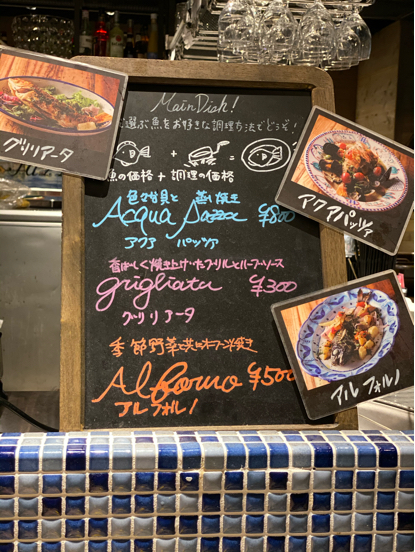 Main Dish!
選ぶ魚をお好きな調理方法でどうぞ!
+ =
魚の価格 + 調理の価格
色々な貝と 蒸し焼き
Acqua Pazza ¥800
アクア パッツァ
香ばしく焼き上げたグリルとハーブソース
grigliata ¥300
グリリアータ
季節野菜と共にオーブン焼き
Al forno ¥500
アル フォルノ
グリリアータ
アクアパッツァ
アル フォルノ